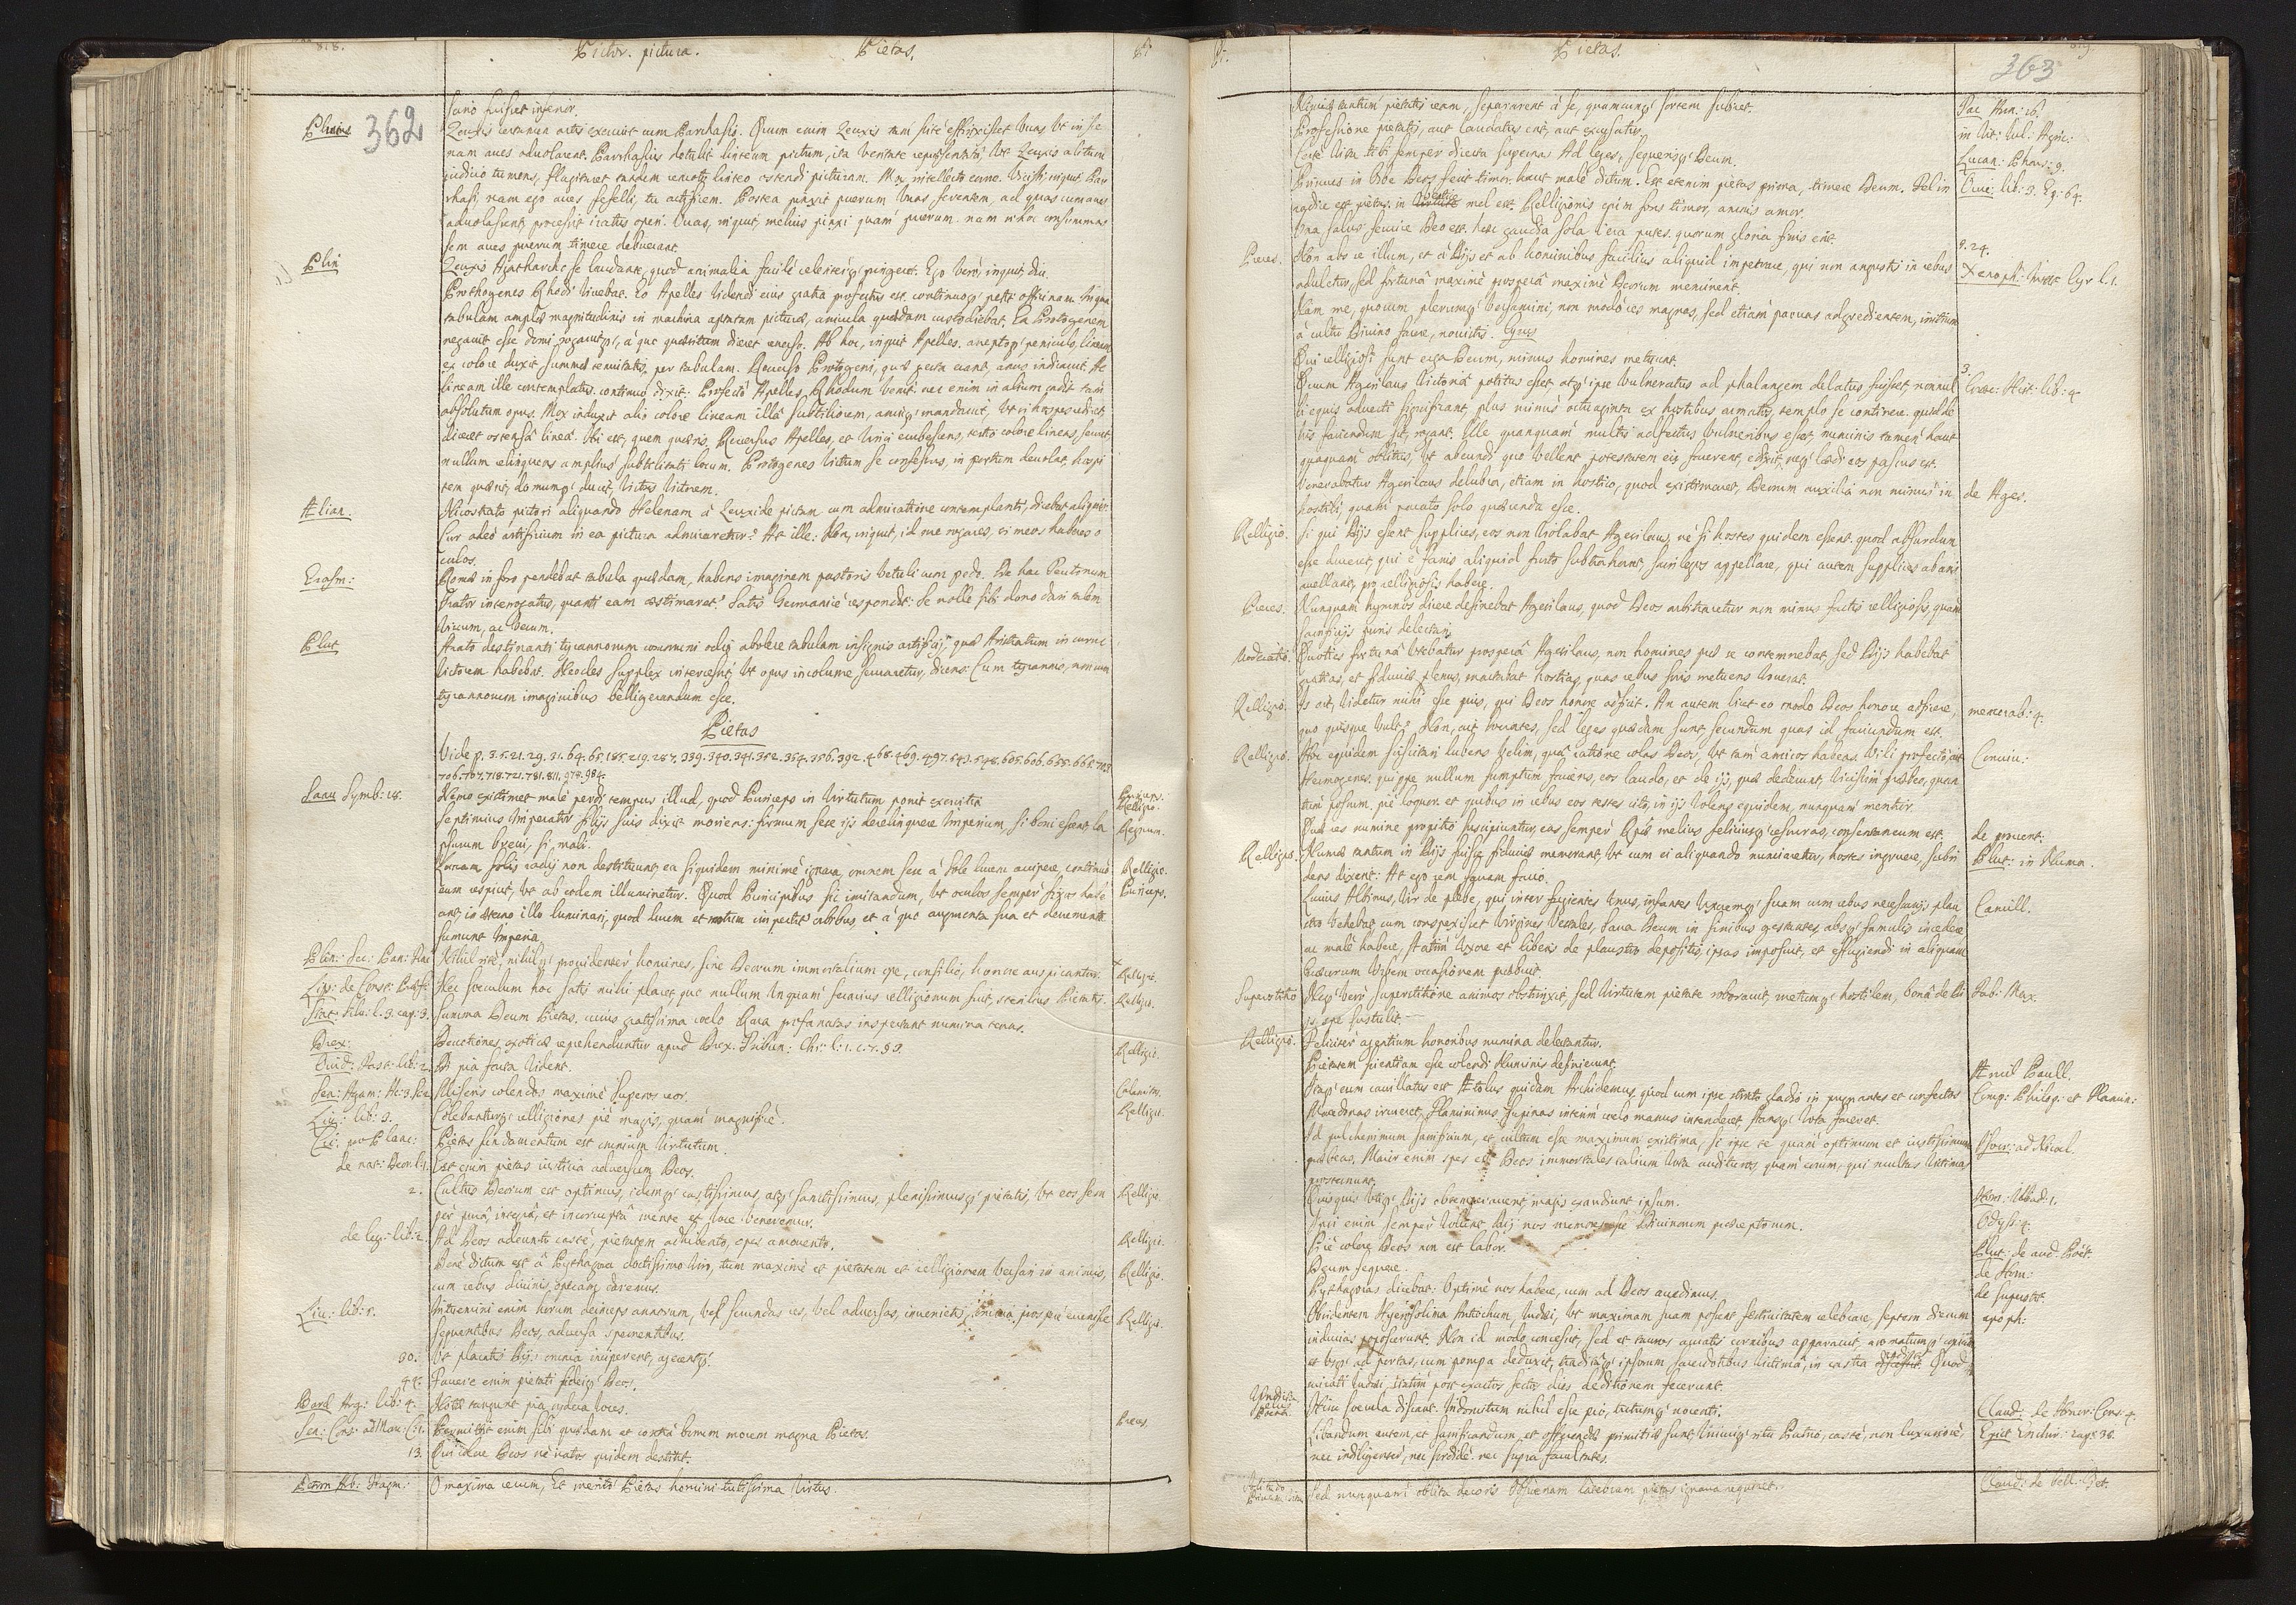 818.
Pictor. pictura. Pietas. Pi
362
suo fuisset inferior.
Plinius Zeuxis certamen artis exercuit cum Parrhasio. Quum enim Zeuxis tam scite effinxisset uvas, ut in sce
nam aves advolarent. Parrhasius detulit linteum pictum, ita veritate repraesentata, ut Zeuxis alitum
judicio tumens, flagitaret tandem remoto linteo ostendi picturam. Mox intellecto errore. Vicisti inquit Par
rhasi, nam ego aves fefelli, tu artificem. Postea pinxit puerum uvas ferentem, ad quas cum aves
advolassent, processit iratus operi. Uvas, inquit, melius pinxi quam puerum. nam si hoc consummas
sem aves puerum timere debuerant.
Plin Zeuxis Agatharcho se laudante, quod animalia facile celeriterq pingeret. Ego vero, inquit, diu.
Prothogenes Rhodi vivebat. Eo Apelles videndi eius gratia profectus est. continuoq petit officinam. In qua
tabulam amplae magnitudinis in machina aptatam picturae, anicula quaedam custodiebat. Ea Protogenem
negavit esse domi, rogavitq, a quo quaesitum diceret reverso. Ab hoc, inquit Apelles. areptoq peniculo, lineam
ex colore duxit summae tenuitatis per tabulam. Reverso Protogeni, quae gesta erant, anus indicavit. At
lineam ille contemplatus. continuo dixit: Profecto Apelles Rhodum venit. nec enim in alium cadit tam
absolutum opus. Mox induxit alio colore lineam illa subtiliorem, anuiq mandavit, ut si hospes rediret,
diceret ostensa linea. Hic est, quem quaeris. Reversus Apelles, et vinci erubescens, tertio colore lineas secuit,
nullum relinquens amplius subtilitati locum. Protogenes victum se confessus, in portum devolat, hospi
tem quaerit, domumq ducit, victus victorem.
Ælian. Nicostrato pictori aliquando Helenam a Zeuxide pictam cum admiratione contemplanti, dicebat aliquis
Cur adeo artificium in ea pictura admiraretur? At ille: Non, inquit, id me rogares, si meos haberes o
culos.
Erasm: Romae in foro pendebat tabula quaedam, habens imaginem pastoris vetuli cum pedo. De hac Teutonum
Orator interrogatus, quanti eam aestimaret? Satis Germanice respondit: Se nolle sibi dono dari talem
vivum, ac verum.
Plut Arato destinanti tyrannorum communi odio abolere tabulam insignis artificij, quae Aristratum in curru
victorem habebat. Neocles supplex intercessit, ut opus incolume servaretur, dicens: Cum tyrannis, non cum
tyrannorum imaginibus belligerandum esse.
Pietas
Vide p. 3.5.21.29.31.64.65.185.219.287.339.340.341.352.354.356.392.468.469.497.543.548.605.606.635.665.703
706.707.718.721.781.811.978.984.
Saau Symb: 18. Nemo existimet male perdi tempus illud, quod Princeps in virtutum ponit exercitio Princeps. Relligio.
Septimius Imperator filijs suis dixit moriens: firmum sese ijs derelinquere Imperium, si boni essent, la Regnum.
psurum brevi, si mali.
Lunam solis radij non destituunt, ea siquidem minime ignara, omnem sese a sole lucem accipere, continuo Relligio.
eum respicit, ut ab eodem illuminetur. Quod Principibus sic imitandum, ut oculos semper fixos habe Princeps.
ant, in aeterno illo luminari, quod lucem et motum impertit orbibus, et a quo augmenta sua et decrementa
sumunt Imperia
Plin: Sec: Pan: Tra Nihil rite, nihilq providenter homines, sine Deorum immortalium ope, consilio, honore auspicantur. Relligio.
Lip: de Const: Praef: Nec saeculum hoc satis mihi placet, quo nullum unquam feracius relligionum fuit, sterilius Pietatis. Relligio.
Stat: Silv: l. 3. cap: 3. Summa Deum Pietas, cuius gratissima coelo Rara profanatas inspectant numina terras.
Drex: Devotiones exoticae reprehenduntur apud Drex. Tribun: Chr: l: 1. c. 7. § 3. Relligio.
Ovid: Fast: lib: 2. Di pia facta vident.
Sen: Agam: Ac: 3. Sce Miseris colendos maxime superos reor. Calamitas.
Liv: lib: 3. Colebanturq relligiones pie magis, quam magnifice. Relligio.
Cic: pro Planc: Pietas fundamentum est omnium virtutum.
de nat: Deor: l: 1. Est enim pietas iustitia adversum Deos.
2. Cultus Deorum est optimus, idemq castissimus, atq sanctissimus, plenissimusq pietatis, ut eos sem Relligio.
per pura, integra, et incorrupta mente et voce veneremur.
de leg: lib: 2. Ad Deos adeunto caste, pietatem adhibento, opes amovento. Relligio.
Bene dictum est a Pythagora doctissimo viro, tum maxime et pietatem et relligionem versari in animis, Relligio.
cum rebus divinis operam daremus.
Liv: lib: 5. Intuemini enim horum deinceps annorum, vel secundas res, vel adversas, invenietis omnia prospere evenisse Relligio.
sequentibus Deos, adversa spernentibus.
30. Ut placatis Dijs omnia inciperent, agerentq.
44. Favere enim pietati fideiq Deos.
Barcl Arg: lib: 4. Notae tangunt pia sydera voces.
Sen: Cons: ad Mar: C: 1. Permittit enim sibi quaedam et contra bonum morem magna Pietas. Preces.
13. Qui colue Deos ne iratos quidem destitit.
Petron Arb: Fragm: O maxima rerum, Et merito Pietas homini tutissima virtus.
Pi. Pietas. 819.
363
Neque tantum pietatis eam, separarent a se, quamcunq sortem subiret. Tac Ann: 16.
Professione pietatis, aut laudatus erit, aut excusatus. in Vit: Iul: Agric:
Certe vita tibi semper directa supernas Ad leges, sequerisq Deum. Lucan: Phars: 9.
Primus in Orbe Deos fecit timor, haut male dictum. Est etenim pietas prima, timere Deum. Fel in Owe: lib: 3. Ep: 64.
radice est pietas. in vertice mel est. Relligionis enim fons timor, amnis amor.
Una salus servire Deo est. haec gaudia sola vera putes, quorum gloria finis erit. 8. 24.
Preces. Non abs re illum, et a Dijs et ab hominibus facilius aliquid impetrare, qui non angustis in rebus Xenoph: Instit Cyr l. 1.
aduletur, sed fortuna maxime prospera maxime Deorum meminerit.
Nam me, quocum plerumq versamini, non modo res magnas, sed etiam parvas adgredientem, initium
a cultu Divino facere, novistis. Cyrus
Qui relligiosi sunt erga Deum, minus homines metuunt. 3.
Quum Agesilaus Victoria potitus esset, atq ipse vulneratus ad phalangem delatus fuisset, nonnul Graec: Hist: lib: 4.
li equis advecti significant, plus minus octuaginta ex hostibus armatis, templo se continere. quid de
his faciendum sit, rogant. Ille quanquam multis adfectus vulneribus esset, numinis tamen haut
quaquam oblitus, ut abeundi quo vellent potestatem eis facerent, edixit, neq laedi eos passus est.
Venerabatur Agesilaus delubra, etiam in hostico, quod existimaret, Deorum auxilia non minus in de Ages.
hostili, quam pacato solo quaerenda esse.
Relligio. Si qui Dijs essent supplices, eos non violabat Agesilaus, ne si hostes quidem essent. quod absurdum
esse duceret, qui e fanis aliquid furto subtraherent, sacrilegos appellare, qui autem supplices ab aris
avellant, pro relligiosis habere.
Preces. Nunquam hymnos dicere desinebat Agesilaus, quod Deos arbitraretur non minus factis relligiosis, quam
sacrificijs puris delectari.
Moderatio. Quoties fortuna utebatur prospera Agesilaus, non homines prae se contemnebat, sed Dijs habebat
gratias, et fiduciae plenus, mactabat hostias, quas rebus suis metuens voverat.
Relligio. Is est, videtur mihi esse pius, qui Deos honore afficit. An autem licet eo modo Deos honore afficere, memorab: 4.
quo quisque vult? Non, ait Socrates, sed leges quaedam sunt, secundum quas id faciundum est.
Relligio. Ibi equidem sciscitari lubens velim, qua ratione colas Deos, ut tam amicos habeas. Vili profecto, ait Conviv:
Hermogenes. quippe nullum sumptum faciens, eos laudo, et de ijs, quae dederunt, vicissim praebeo, quan
tum possum, pie loquor. et quibus in rebus eos testes cito, in ijs volens equidem, nunquam mentior.
Quae res numine propitio suscipiuntur, eas semper Reip melius feliciusq cessuras, consentaneum est. de provent:
Relligio. Numae tantum in Dijs fuisse fiduciae memorant, ut cum ei aliquando nunciaretur, hostes ingruere, subri Plut: in Numa.
dens dixerit: At ego rem sacram facio.
Lucius Albinus, vir de plebe, qui inter fugientes unus, infantes uxoremq suam cum rebus necessarijs plau Camill.
stro vehebat, cum conspexisset Virgines Vestales, sacra Deum in sinibus gestantes, absq famulis incedere
ac male habere, statim uxore et liberis de plaustro depositis, ipsas imposuit, et effugiendi in aliquam
Graecarum urbem occasionem praebuit.
Superstitio Neq vero superstitione animos obstrinxit, sed virtutem pietate roboravit, metumq hostilem, bona de Di Fab: Max.
js spe sustulit.
Relligio. Feliciter agentium honoribus numina delectantur.
Pietatem scientiam esse colendi Numinis definierunt. Æmil Paull.
Itaq eum cavillatus est Ætolus quidam Archidemus, quod cum ipse stricto gladio in pugnantes et confertos Comp: Philop: et Flamin:
Macedonas irrueret, Flamininus supinas interim coelo manus intenderet, stansq vota faceret.
Id pulcherrimum sacrificium, et cultum esse maximum existima, si ipse te quam optimum et iustissimum Isocr: ad Nicocl.
praebeas. Maior enim spes est Deos immortales talium vota audituros quam eorum, qui multas victimas
prosternunt.
Quisquis utiq Dijs obtemperaverit, magis exaudiunt ipsum. Hom: Iliad: 1.
Ipsi enim semper volunt Dij nos memores esse Divinorum praeceptorum. Odyss: 4.
Pie colere Deos non est labor. Plut: de aud: Poët.
Deum sequere. de Hom:
Pythagoras dicebat: Optime nos habere, cum ad Deos accedimus. de superst:
Obsidentem Hyerosolima Antiochum, Iudaei, ut maximam suam possent festivitatem celebrare, septem dierum apoph:
inducias poposcerunt. Non id modo concessit, sed et tauros auratis cornibus apparavit, aromatumq copiam
et usq ad portas, cum pompa deduxit, traditaq ipsorum sacerdotibus victima, in castra rediit. Quod
mirati Iudaei, statim post exactos festos dies deditionem fecerunt.
Vindicta Hinc saecula discant. Indomitum nihil esse pio, tutumq nocenti. Claud: de Honor: Cons: 4.
Poena.
Libandum autem, et sacrificandum, et offerendae primitiae sunt, cuiuiq ritu Patrio, caste, non luxuriose, Epict Enchir: cap: 38.
nec indiligenter, nec sordide. nec supra facultates.
Sed nunquam oblita decoris Obscenam latebram pietas ignava requiret. Claud: de bell: Get.